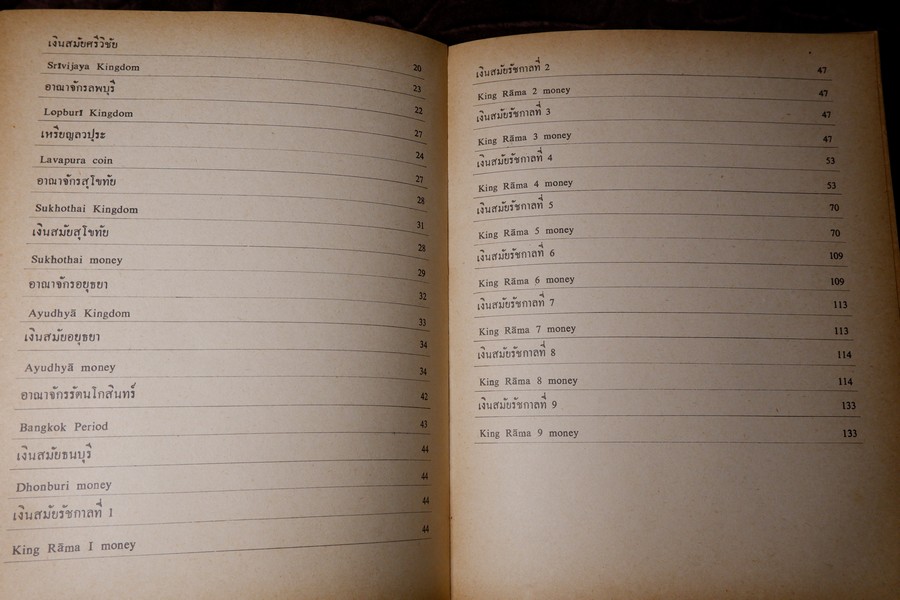 เงินสมัยศรีวิชัย 20
Srīvijaya Kingdom 23
อาณาจักรลพบุรี 22
Lopburī Kingdom 27
เหรียญลวปุระ 24
Lavapura coin 27
อาณาจักรสุโขทัย 28
Sukhothai Kingdom 31
เงินสมัยสุโขทัย 28
Sukhothai money 29
อาณาจักรอยุธยา 32
Ayudhyā Kingdom 33
เงินสมัยอยุธยา 34
Ayudhyā money 34
อาณาจักรรัตนโกสินทร์ 42
Bangkok Period 43
เงินสมัยธนบุรี 44
Dhonburi money 44
เงินสมัยรัชกาลที่ 1 44
King Rāma I money 44
เงินสมัยรัชกาลที่ 2 47
King Rāma 2 money 47
เงินสมัยรัชกาลที่ 3 47
King Rāma 3 money 47
เงินสมัยรัชกาลที่ 4 53
King Rāma 4 money 53
เงินสมัยรัชกาลที่ 5 70
King Rāma 5 money 70
เงินสมัยรัชกาลที่ 6 109
King Rāma 6 money 109
เงินสมัยรัชกาลที่ 7 113
King Rāma 7 money 113
เงินสมัยรัชกาลที่ 8 114
King Rāma 8 money 114
เงินสมัยรัชกาลที่ 9 133
King Rāma 9 money 133